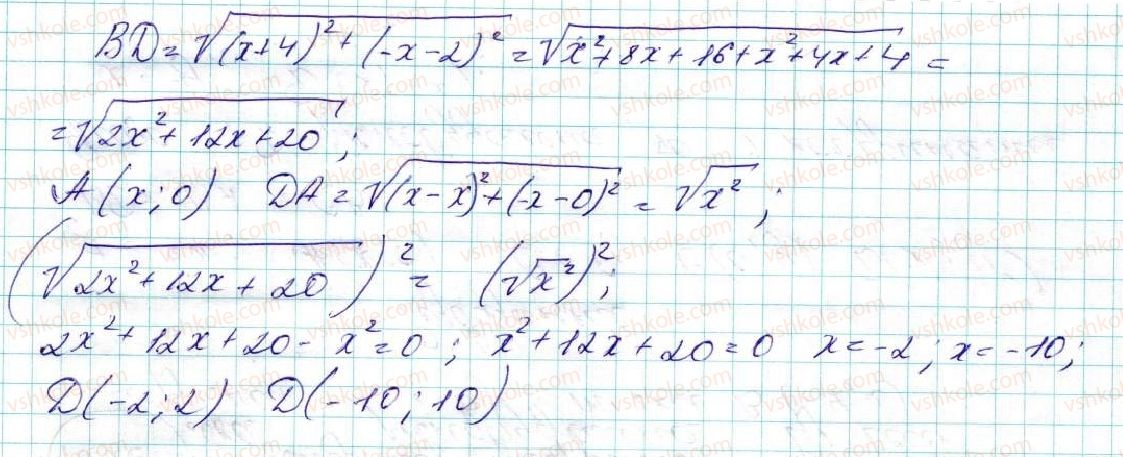 BD = √((x+4)² + (-x-2)²) = √(x²+8x+16+x²+4x+4) =
= √(2x²+12x+20);
A(x;0) DA = √((x-x)²+(-x-0)²) = √(x²);
(√(2x²+12x+20))² = (√(x²))²;
2x²+12x+20-x²=0; x²+12x+20=0 x=-2; x=-10;
D(-2;2) D(-10;10)
vshkole.com